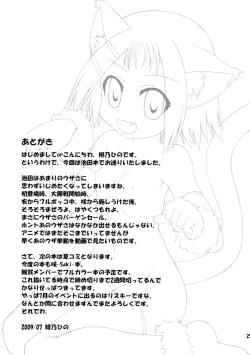 あとがき
はじめましてorこんにちわ、緋乃ひのです。
というわけで、今回は池田本でお送りいたしました。
池田はあまりのウザさに
思わずいじめたくなってしまいますね。
初登場時、大将戦開始時、
咲からフルボッコ中、咲から施しうけた後、
そろそろまぜろよ、はやくつもれよ、
まさにウザさのバーゲンセール。
ホントあのウザさはなかなか出せるもんじゃない。
アニメではまだそこまでいってませんが
早くあのウザ挙動を動画で見たいものです。
さて、次の本は夏コミとなります。
今度の本も咲-Saki-本。
鶴賀メンバーでフルカラー本の予定です。
これ描いてる時点で締め切りまで2週間切ってるんで
かなりせっぱつまってます。
やっぱ7月のイベントに出るのはリスキーですな、
なんとか間に合わせますんでまたよろしくです。
それでわ。
2009/07 緋乃ひの
2